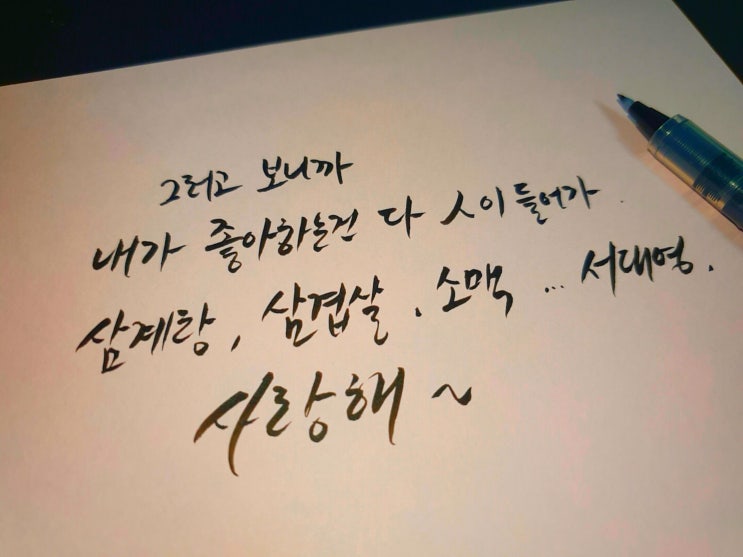 그러고 보니까
내가 좋아하는건 다 ㅅ이 들어가.
삼계탕, 삼겹살, 소맥 ... 서대영.
사랑해 ~